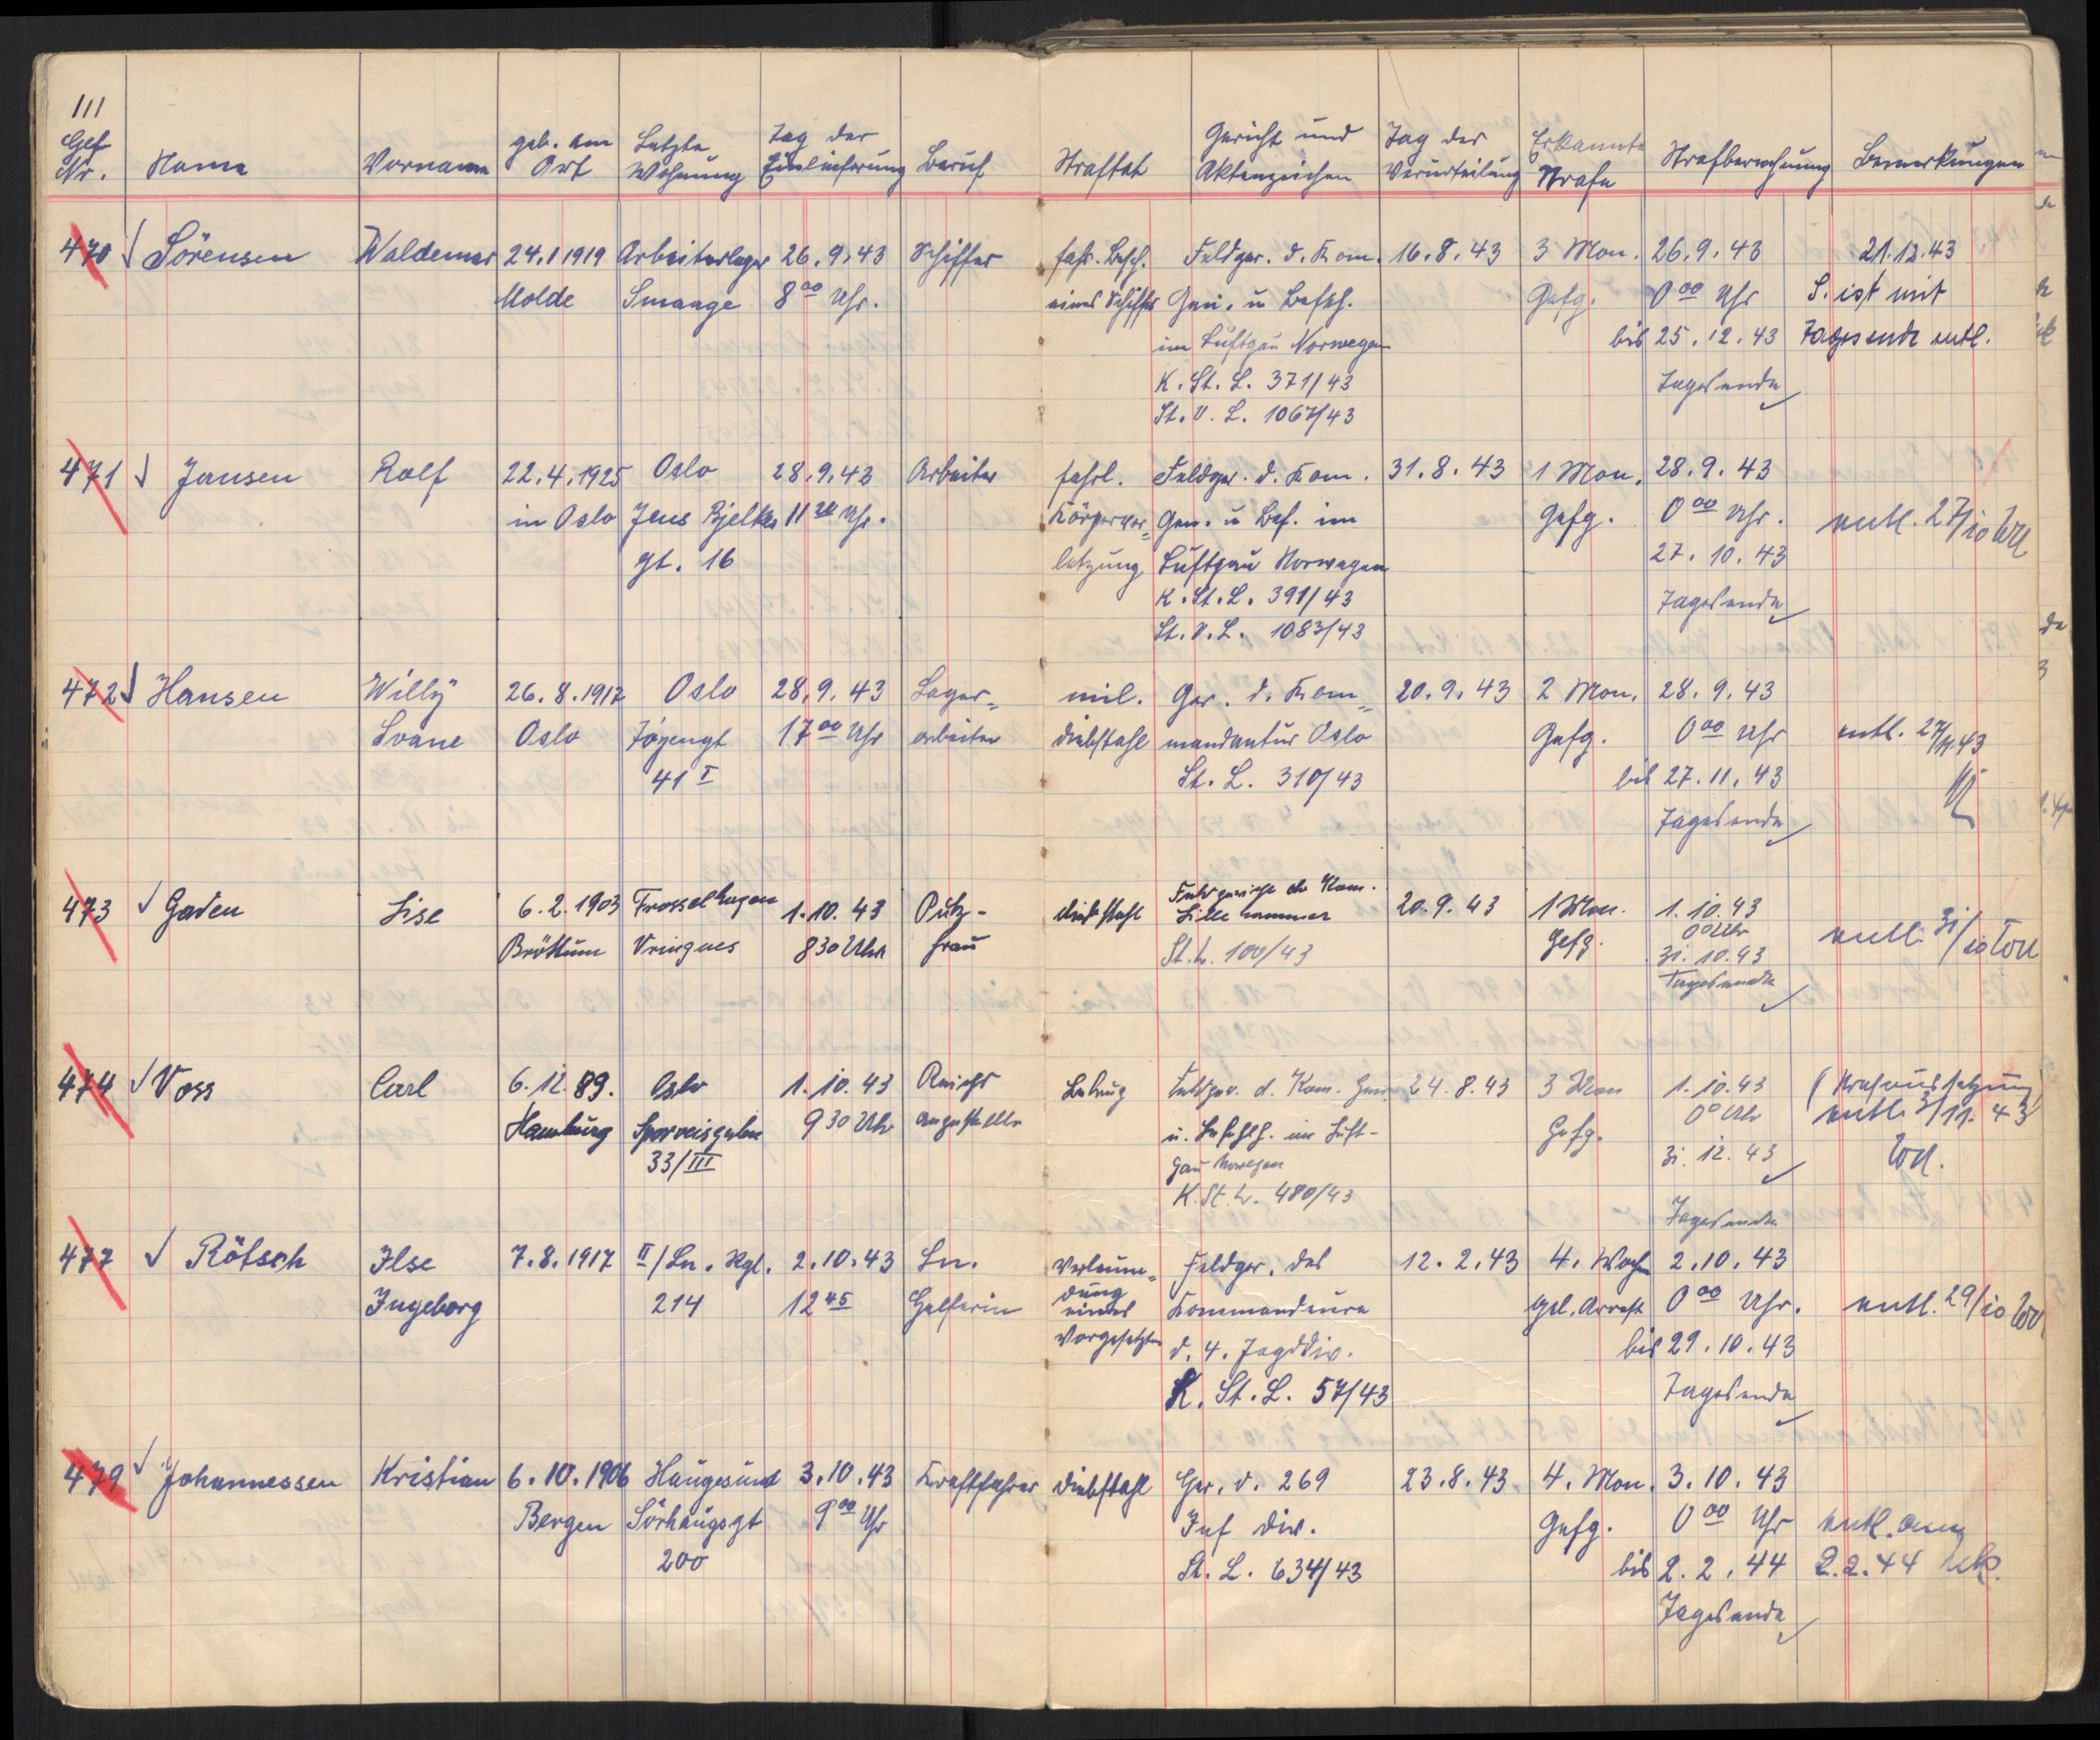 111
Gef. Nr. Name Vorname geb. am Ort Letzte Wohnung Tag der Einlieferung Beruf Straftat Gericht und Aktenzeichen Tag der Verurteilung Erkannte Strafe Strafberechnung Bemerkungen
470 Sörensen Waldemar 24.1.1919 Arbeiterlager 26.9.43 Schiffer fahr. Besch. Feldger. d. Kom. 16.8.43 3 Mon. 26.9.43 21.12.43
Molde Smaage 8 00 Uhr. eines Schiffes Gen. u Befh. Gefg. 0 00 Uhr S. ist mit
im Luftgau Norwegen bis 25.12.43 Tagesende entl.
K. St. L. 371/43 Tagesende
St. V. L. 1067/43
471 Jansen Rolf 22.4.1925 Oslo 28.9.43 Arbeiter fahrl. Feldger. d. Kom. 31.8.43 1 Mon. 28.9.43
in Oslo Jens Bjelkes 11 20 Uhr. Körperver= Gen. u Bef. im Gefg. 0 00 Uhr. entl. 27/10
gt. 16 letzung Luftgau Norwegen 27.10.43
K. St. L. 391/43 Tagesende
St. V. L. 1083/43
472 Hansen Willy 26.8.1917 Oslo 28.9.43 Lager= mil. Ger. d. Kom= 20.9.43 2 Mon. 28.9.43
Svane Oslo Töyengt 17 00 Uhr arbeiter Diebstahl mandantur Oslo Gefg. 0 00 Uhr entl. 27/11.43
41 I St. L. 310/43 bis 27.11.43
Tagesende
473 Gaden Lise 6.2.1903 1.10.43 Putz- Diebstahl Feldgericht der Kom. 20.9.43 1 Mon. 1.10.43
Bröttum 8 30 Uhr frau Lillehammer Gefg. 0 0 Uhr entl. 31/10
St. L. 100/43 31.10.43
Tagesende
474 Voss Carl 6.12.89. Oslo 1.10.43 Reichs Betrug Feldger. d. Kom. Gen. 24.8.43 3 Mon 1.10.43 (Strafaussetzung)
Hamburg Sporveisgaten 9 30 Uhr angestellter u. Befehlh. im Luft- Gefg. 0 0 Uhr entl. 3/11.43
33/III gau Norwegen 31.12.43
K. St. L. 480/43
Tagesende
477 Rötsch Ilse 7.8.1917 II/Ln. Rgt. 2.10.43 Ln. Verleum= Feldger. des 12.2.43 4. Woch 2.10.43
Ingeborg 214 12 45 Helferin dung eines Kommandeurs gel. Arrest 0 00 Uhr. entl. 29/10
Vorgesetzten d. 4. Jagddiv. bis 29.10.43
K. St. L. 57/43 Tagesende
479 Johannessen Kristian 6.10.1906 Haugesund 3.10.43 Kraftfahrer Diebstahl Ger. d. 269 23.8.43 4. Mon. 3.10.43
Bergen Sörhaugsgt 9 00 Uhr Inf div. Gefg. 0 00 Uhr entl. am
200 St. L. 634/43 bis 2.2.44 2.2.44
Tagesende